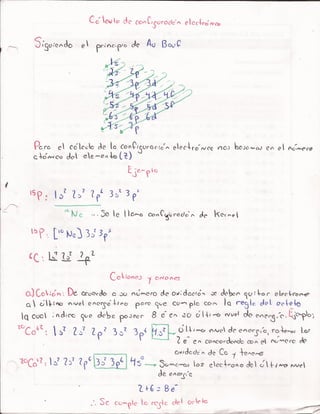 Cálculo de configuración electrónica
Siguiendo el principio de Au Bauf
1s
2s 2p
3s 3p 3d
4s 4p 4d 4f
5s 5p 5d 5f
6s 6p 6d
7s 7p
Para el cálculo de la configuración electrónica nos basamos en el número
atómico del elemento (Z)
Ejemplo
15P: 1s² 2s² 2p⁶ 3s² 3p³
10Ne → Se le llama configuración de Kernel
15P: [10Ne] 3s² 3p³
6C: 1s² 2s² 2p²
Cationes y aniones
a) Catión: De acuerdo a su número de oxidación se deben quitar electrones
al último nivel energético para que cumpla con la regla del octeto
la cual indica que debe poseer 8 e⁻ en su último nivel de energía. Ejemplo:
20Ca⁺²: 1s² 2s² 2p⁶ 3s² 3p⁶ 4s² → Último nivel de energía, restamos los
2 e⁻ en concordancia con el número de
oxidación de Ca y tenemos
20Ca⁺²: 1s² 2s² 2p⁶ 3s² 3p⁶ 4s⁰ → Sumamos los electrones del último nivel
de energía
2+6 = 8e⁻
∴ Se cumple la regla del octeto